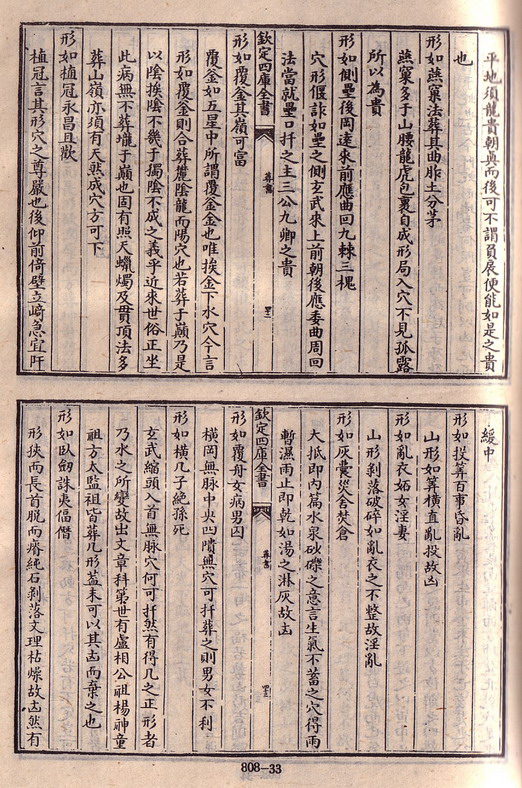 平地須龍貴朝真而後可不謂負扆便能如是之貴
也
形如燕窠法葬其曲胙土分茅
燕窠多于山腰龍虎包裹自成形局入穴不見孤露
所以為貴
形如側罍後岡遠來前應曲回九棘三槐
穴形偃詐如罍之側玄武來上前朝後應委曲周回
法當就罍口扦之主三公九卿之貴
欽定四庫全書
葬書
形如覆釜其嶺可富
覆釜如五星中所謂覆釜金也唯挨金下水穴今言
形如覆釜則合葬麓陰龍而陽穴也若葬子巔乃是
以陰挨陰不幾于獨陰不成之義乎近來世俗正坐
此病無不葬壠于巔也固有照天蠟燭及貫頂法多
葬山嶺亦須有天然成穴方可下
形如植冠永昌且歡
植冠言其形穴之尊嚴也後仰前倚壁立崎急宜阡
緩中
形如投算百事昏亂
山形如算橫直亂投故凶
形如亂衣妬女淫妻
山形剥落破碎如亂衣之不整故淫亂
形如灰囊災舍焚倉
大抵即内篇水泉砂礫之意言生氣不蓄之穴得雨
暫濕雨止即乾如湯之淋灰故凶
欽定四庫全書
葬書
形如覆舟女病男囚
橫岡無脉中央四隤無穴可扦葬之則男女不利
形如橫几子絶孫死
玄武縮頭入首無脉穴何可扦然有得几之正形者
乃水之所變故出文章科第世有盧相公祖楊神童
祖方太監祖皆葬几形葢未可以其凶而棄之也
形如臥劒誅夷偪僭
形狹而長首脱而瘠純石剥落文理枯燥故凶然有
808—33